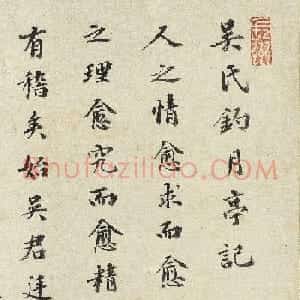 吴氏钓月亭記
人之情愈求而愈
之理愈究而愈精
有稽矣始吴君廷
shufaziliao.com